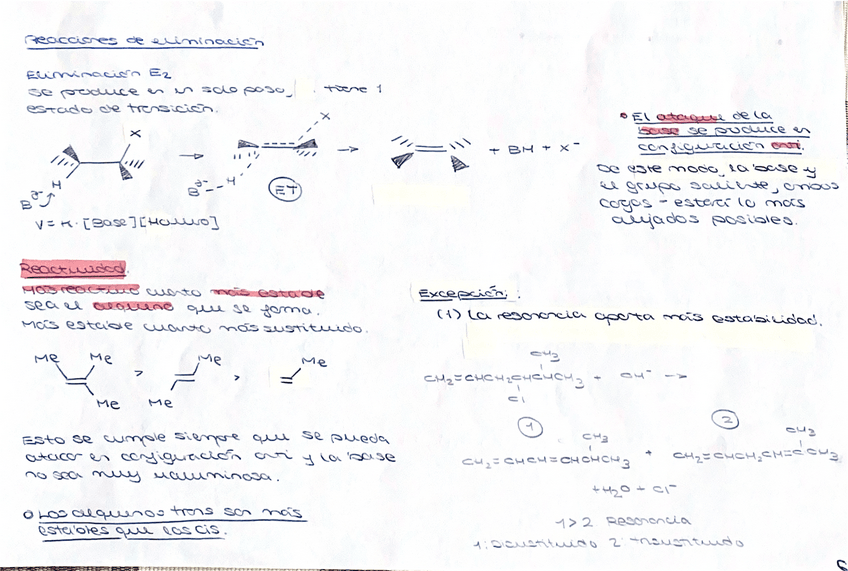 Reacciones de eliminación
Eliminación E2
se produce en un solo paso, tiene 1
estado de transición.
X
H
B δ-
X
H
B δ-
ET
+ BH + X⁻
V = K · [Base][Haluro]
• El ataque de la
base se produce en
configuración anti.
De este modo, la base y
el grupo saliente, ambos
cargas - estarí lo más
alejados posibles.
Reactividad.
Más reactivo cuanto más estable
sea el alqueno que se forma.
Más estable cuanto más sustituido.
Me Me Me > Me Me > Me
Esto se cumple siempre que se pueda
atacar en configuración anti y la base
no sea muy voluminosa.
o Los alquenos trans son más
estables que los cis.
Excepción:
(1) La resonancia aporta más estabilidad.
CH3
CH2=CHCH2CHCHCH3 + OH⁻ →
Cl
1 2
CH3 CH3
CH2=CHCH=CHCHCH3 + CH2=CHCH2CH=CCH3
+H2O + Cl⁻
1>2 Resonancia
1: Disustituido 2: Trisustituido